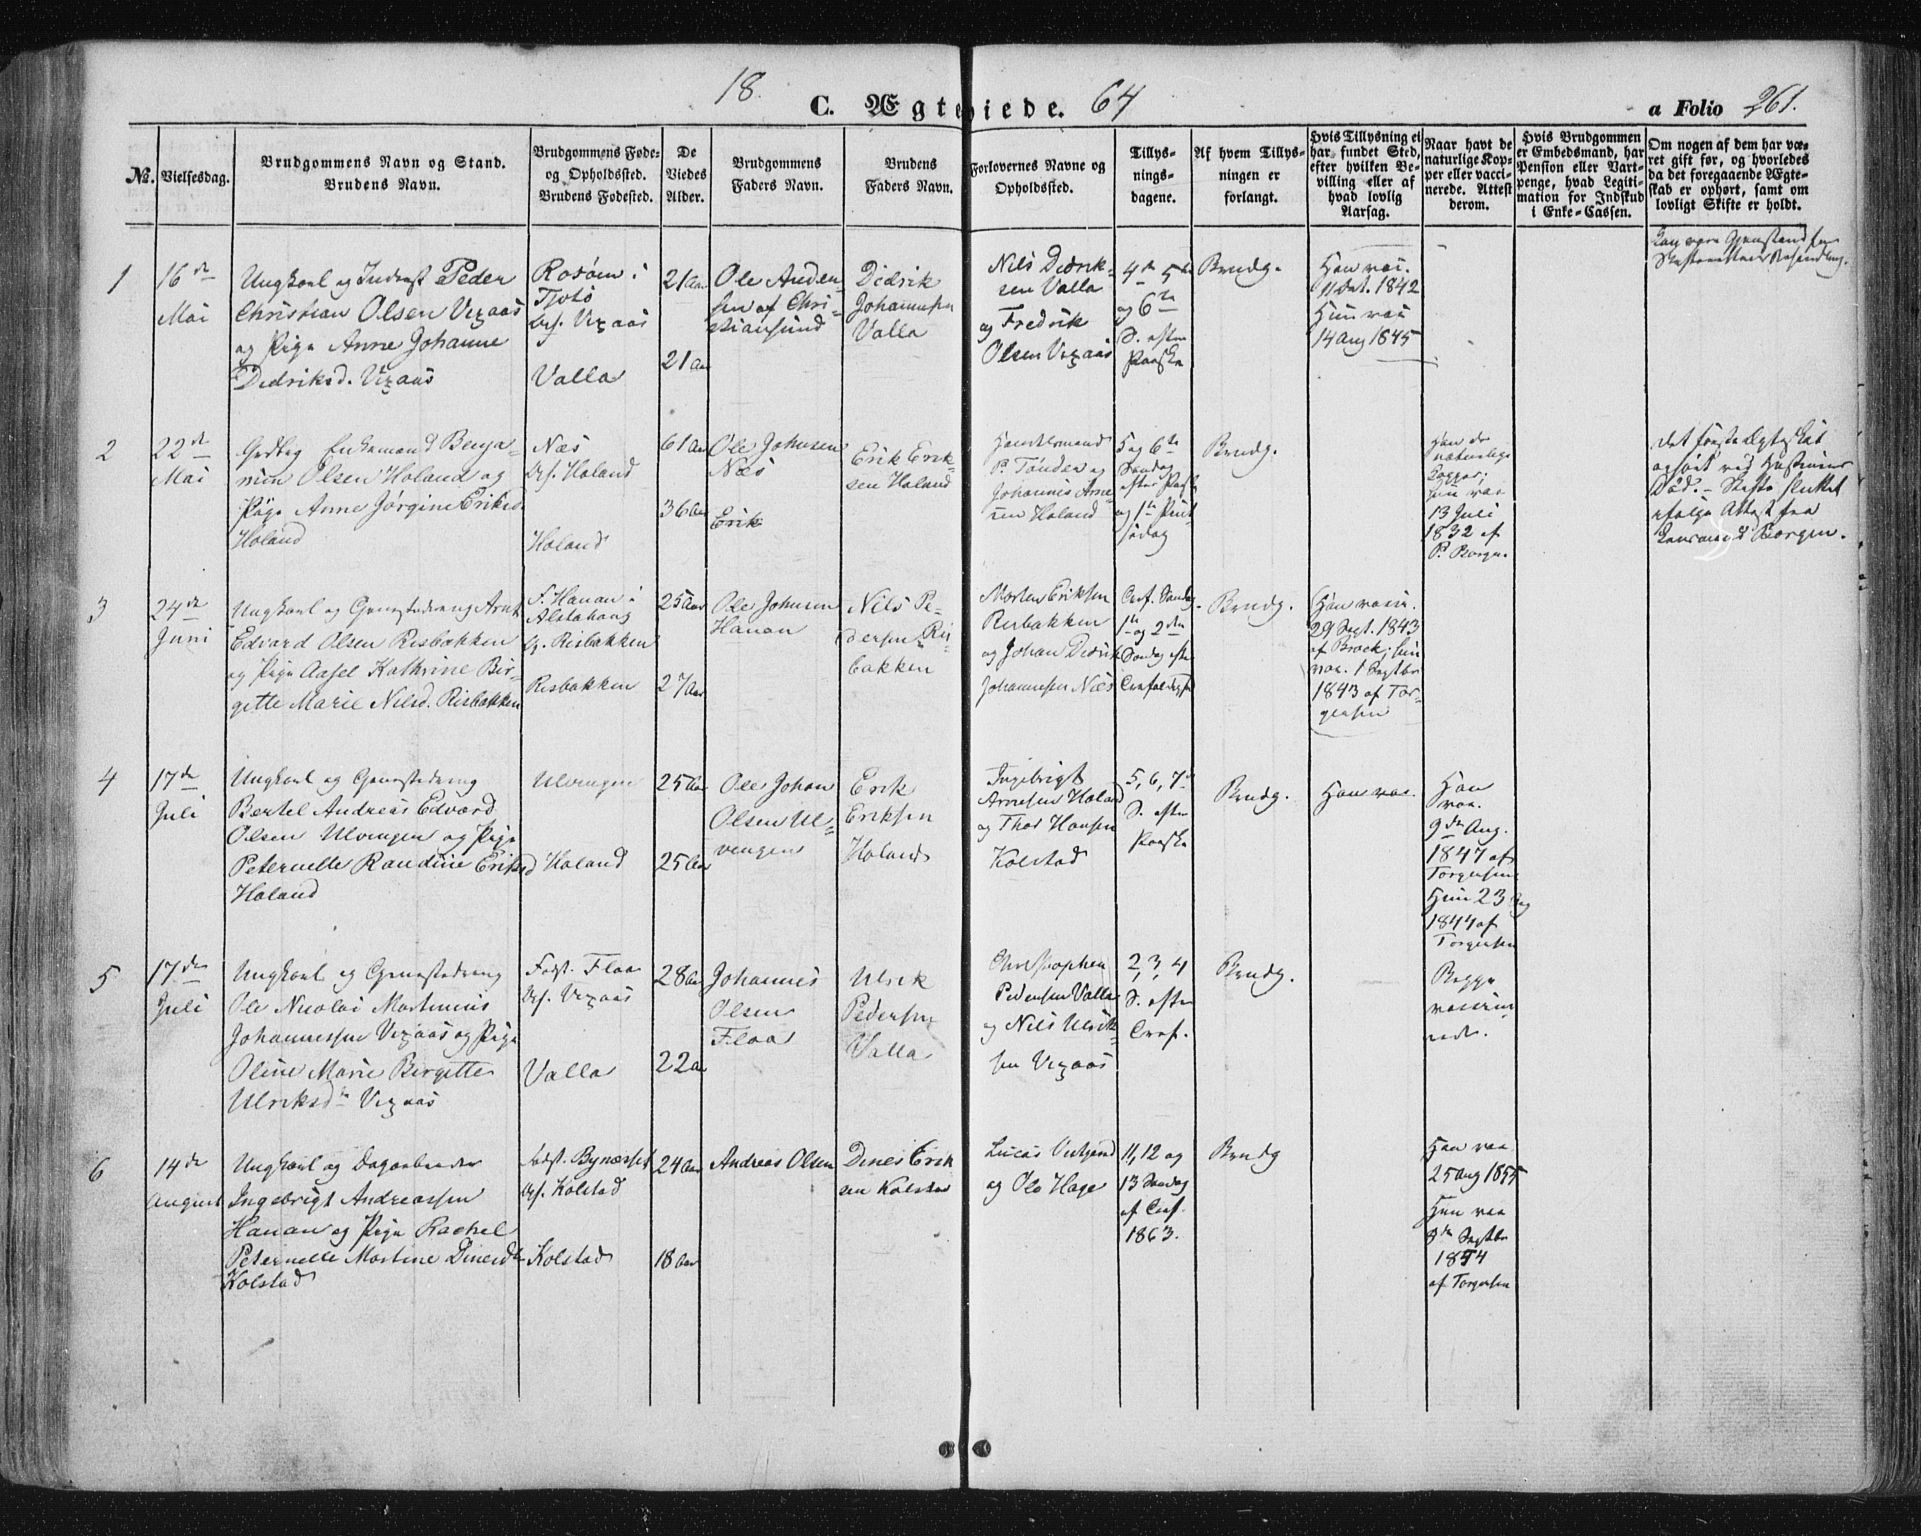 18 64
C. Ægteviede.
a Folio 261.
№.
Vielsesdag.
Brudgommens Navn og Stand.
Brudens Navn.
Brudgommens Føde-
og Opholdssted.
Brudens Fødested.
De
Viedes
Alder.
Brudgommens
Faders Navn.
Brudens
Faders Navn.
Forlovernes Navne og
Opholdssted.
Tillys-
nings-
dagene.
Af hvem Tillys-
ningen er
forlangt.
Hvis Tillysning ei
har fundet Sted,
efter hvilken Be-
villing eller af
hvad lovlig
Aarsag.
Naar havt de
naturlige Kop-
per eller vacci-
nerede. Attest
derom.
Hvis Brudgommen
er Embedsmand, har
Pension eller Vart-
penge, hvad Legiti-
mation for Indskud
i Enke-Cassen.
Om nogen af dem har væ-
ret gift før, og hvorledes
da det foregaaende Ægte-
skab er ophørt, samt om
lovligt Skifte er holdt.
1
16de
Mai
Ungkarl og Inderst Peder
Christian Olsen Vixaas
og Pige Anne Johanne
Didriksd. Vixaas
Rosøen i
Tjøtø
Vixaas
Valla
21 Aar
21 Aar
Ole Ander-
sen af Chri-
stiansund
Didrik
Johannesen
Valla
Nils Didrik-
sen Valla
og Fredrik
Olsen Vixaas
4de 5te
og 6te
S. efter
Paaske
Brudg.
Han vac.
11 Oct. 1842
Hun vac.
14 Aug 1845
2
22de
Mai
Enkemand Benja-
min Olsen Holand og
Pige Anne Jørgine Eriksd.
Holand
Næs
Holand
Holand
61 Aar
36 Aar
Ole Johnsen
Næs
Erik
Erik Erik-
sen Holand
Handelsmand
P. Tønder og
Johannes Arne-
sen Holand
5 og 6te
Søndag
efter Paaske
og 1te Pint-
sedag
Brudg.
Han de
naturlige
Kopper,
hun vac
13 Juli
1832 af
P. Borgen.
Det første Ægteskab
ophørt ved Hustruens
Død. – Skifte sluttet
ifølge Attest fra
Borgen.
3
24de
Juni
Ungkarl og Arnt
Edvard Olsen Risbakken
og Pige Aasel Kathrine Bir-
gitte Marie Nilsd. Risbakken
F. Hanan i
Alstahaug
Risbakken
Risbakken
25 Aar
27 Aar
Ole Johnsen
Hanan
Nils Pe-
dersen Ris-
bakken
Morten Eriksen
Risbakken
og Johan Didrik
Johannesen Næs
Søndag
1te og 2den
Søndag efter
Brudg.
Han vac.
29 Sept. 1843
af Brock; hun
vac. 1 Septbr
1843 af Tor-
gersen
4
17de
Juli
Ungkarl og
Bertel Andreas Edvard
Olsen Ulvingen og Pige
Peternelle Randine Eriksd
Holand
Ulvingen
Holand
25 Aar
25 Aar
Ole Johan
Olsen Ul-
vingen
Erik
Eriksen
Holand
Ingebrigt
Arnesen Holand
og Thor Hansen
Kolstad
5, 6, 7de
S. efter
Paaske
Brudg.
Han vac.
Han
vac.
9de Aug.
1847 af
Torgersen
Hun 23 Aug
1847 af
Torgersen
5
17de
Juli
Ungkarl og
Ole Nicolai Martinus
Johannessen Vixaas og Pige
Oline Marie Birgitte
Ulriksdtr Vixaas
Fødst. Floa
Vixaas
Valla
28 Aar
22 Aar
Johannes
Olsen
Floa
Ulrik
Pedersen
Valla
Christopher
Pedersen Valla
og Nils Ulrik-
sen Vixaas
2, 3, 4
S. efter
Brudg.
Begge
vaccine-
rede.
6
14de
August
Ungkarl og Dagarbeider
Ingebrigt Andreassen
Hanan og Pige Rachel
Peternelle Martine Dinesdtr
Kolstad
Fødst. Bynæsset
Kolstad
Kolstad
24 Aar
18 Aar
Andreas Olsen
Dines Erik
sen Kolstad
Lucas
og Ole Hage
11, 12 og
13 Søndag
1863.
Brudg
Han vac
25 Aug 1855
Hun vac
8de Septbr
1854
af Torgersen